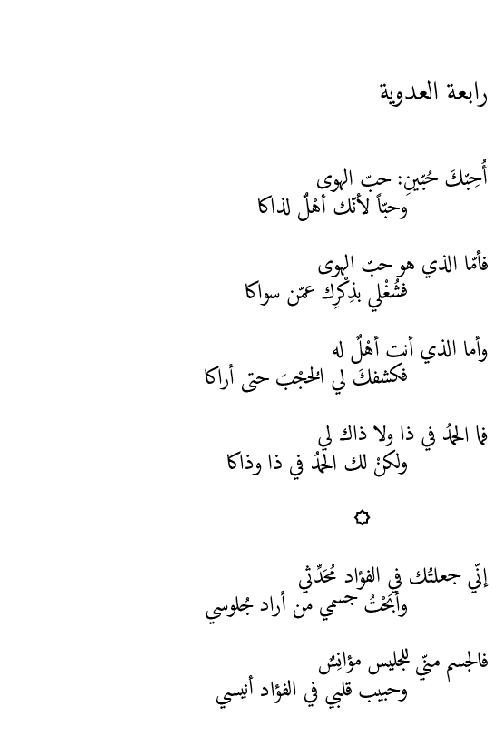 رابعة العدوية
أُحِبّكَ حُبّينِ: حبّ الهوى
وحبّاً لأنّك أهْلٌ لذاكا
فأمّا الذي هو حبّ الهوى
فشُغْلي بذِكْرِك عمّن سواكا
وأما الذي أنت أهْلٌ له
فكشفكَ لي الحُجْبَ حتى أراكا
فما الحمدُ في ذا ولا ذاك لي
ولكنْ لك الحمدُ في ذا وذاكا
إنّي جعلتُك في الفؤاد مُحَدِّثي
وأبَحْتُ جسمي من أراد جُلوسي
فالجسم منّي للجليس مؤانِسٌ
وحبيب قلبي في الفؤاد أنيسي